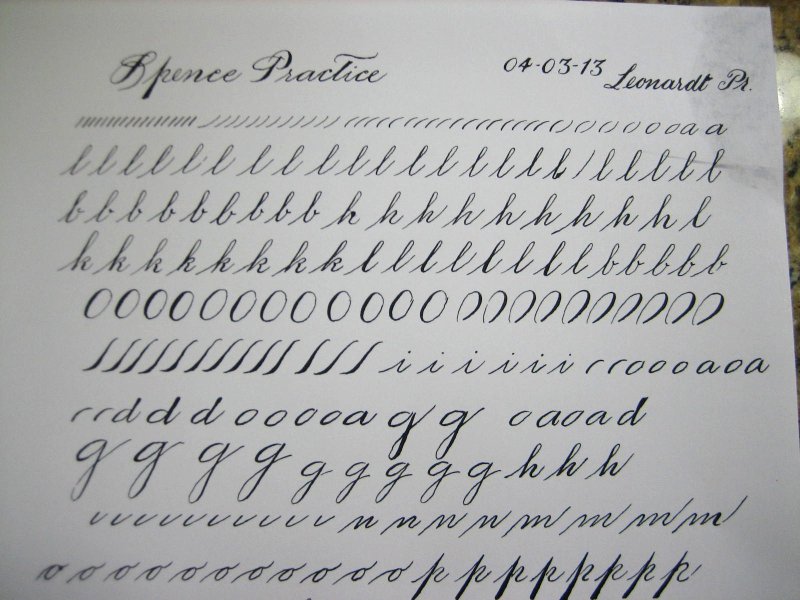 Spence Practice 04-03-13 Leonardt Pr.
o o o o o a a
l l l l l l l l l l l l l l l l l l l / l l l l l
b b b b b b b b b b h h h h h h h h h h h l
k k k k k k k k k l l l l l l l l l b b b b b
O O O O O O O O O O O O O
i i i i i i o o o a o a
d d d o o o o a g g o a o a d
g g g g g g g g g h h h
n n n n m m m m
o o o o o o o o o o o o p p p p p p p p p